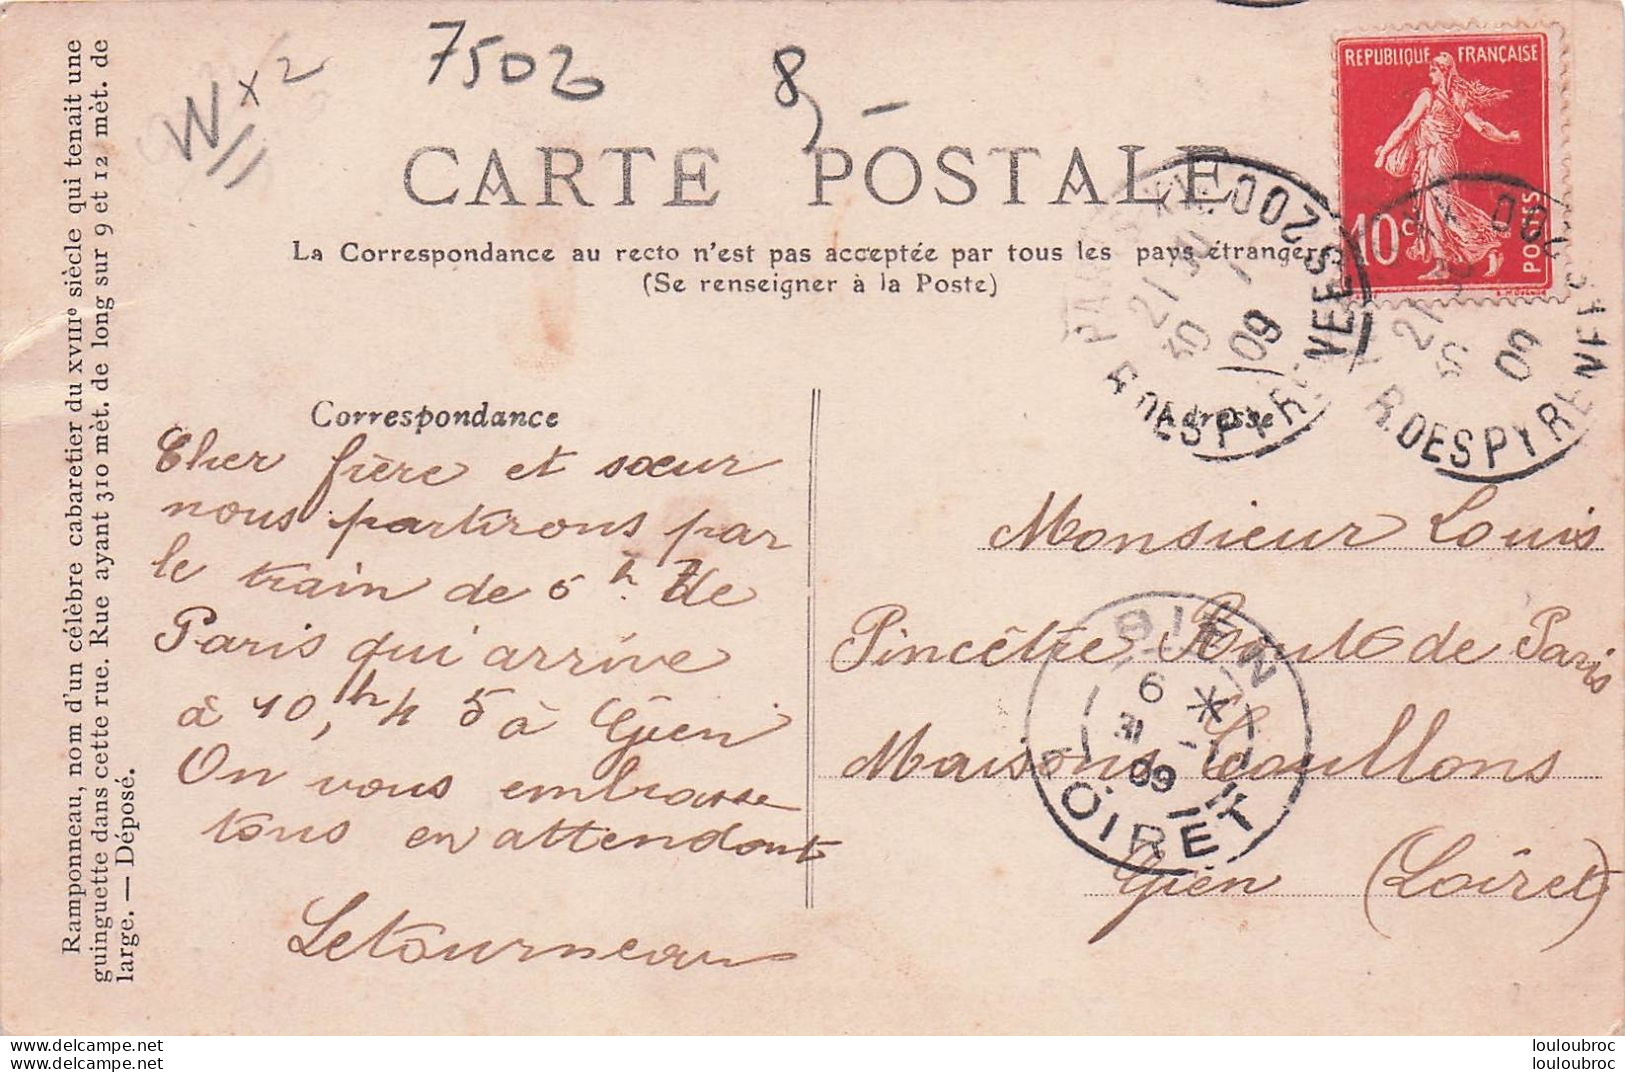 W x 2
7502
8,-
CARTE POSTALE
La Correspondance au recto n'est pas acceptée par tous les pays étrangers
(Se renseigner à la Poste)
Ramponneau, nom d'un célèbre cabaretier du XVIIIe siècle qui tenait une
guinguette dans cette rue. Rue ayant 310 mèt. de long sur 9 et 12 mèt. de
large. — Déposé.
REPUBLIQUE FRANÇAISE
10 c
POSTES
PARIS XX
21 30
30
09
R. DES PYRENEES
R. DES PYRENEES
09
Correspondance
Cher frère et sœur
nous partirons par
le train de 6 h. 7 de
Paris qui arrive
à 10, h 45 à Gien
On vous embrasse
tous en attendant
Letourneau
Adresse
Monsieur Louis
Pincêtre Route de Paris
Maison Coullons
Gien (Loiret)
GIEN
6 *
31 - 1
09
LOIRET
louloubroc
louloubroc